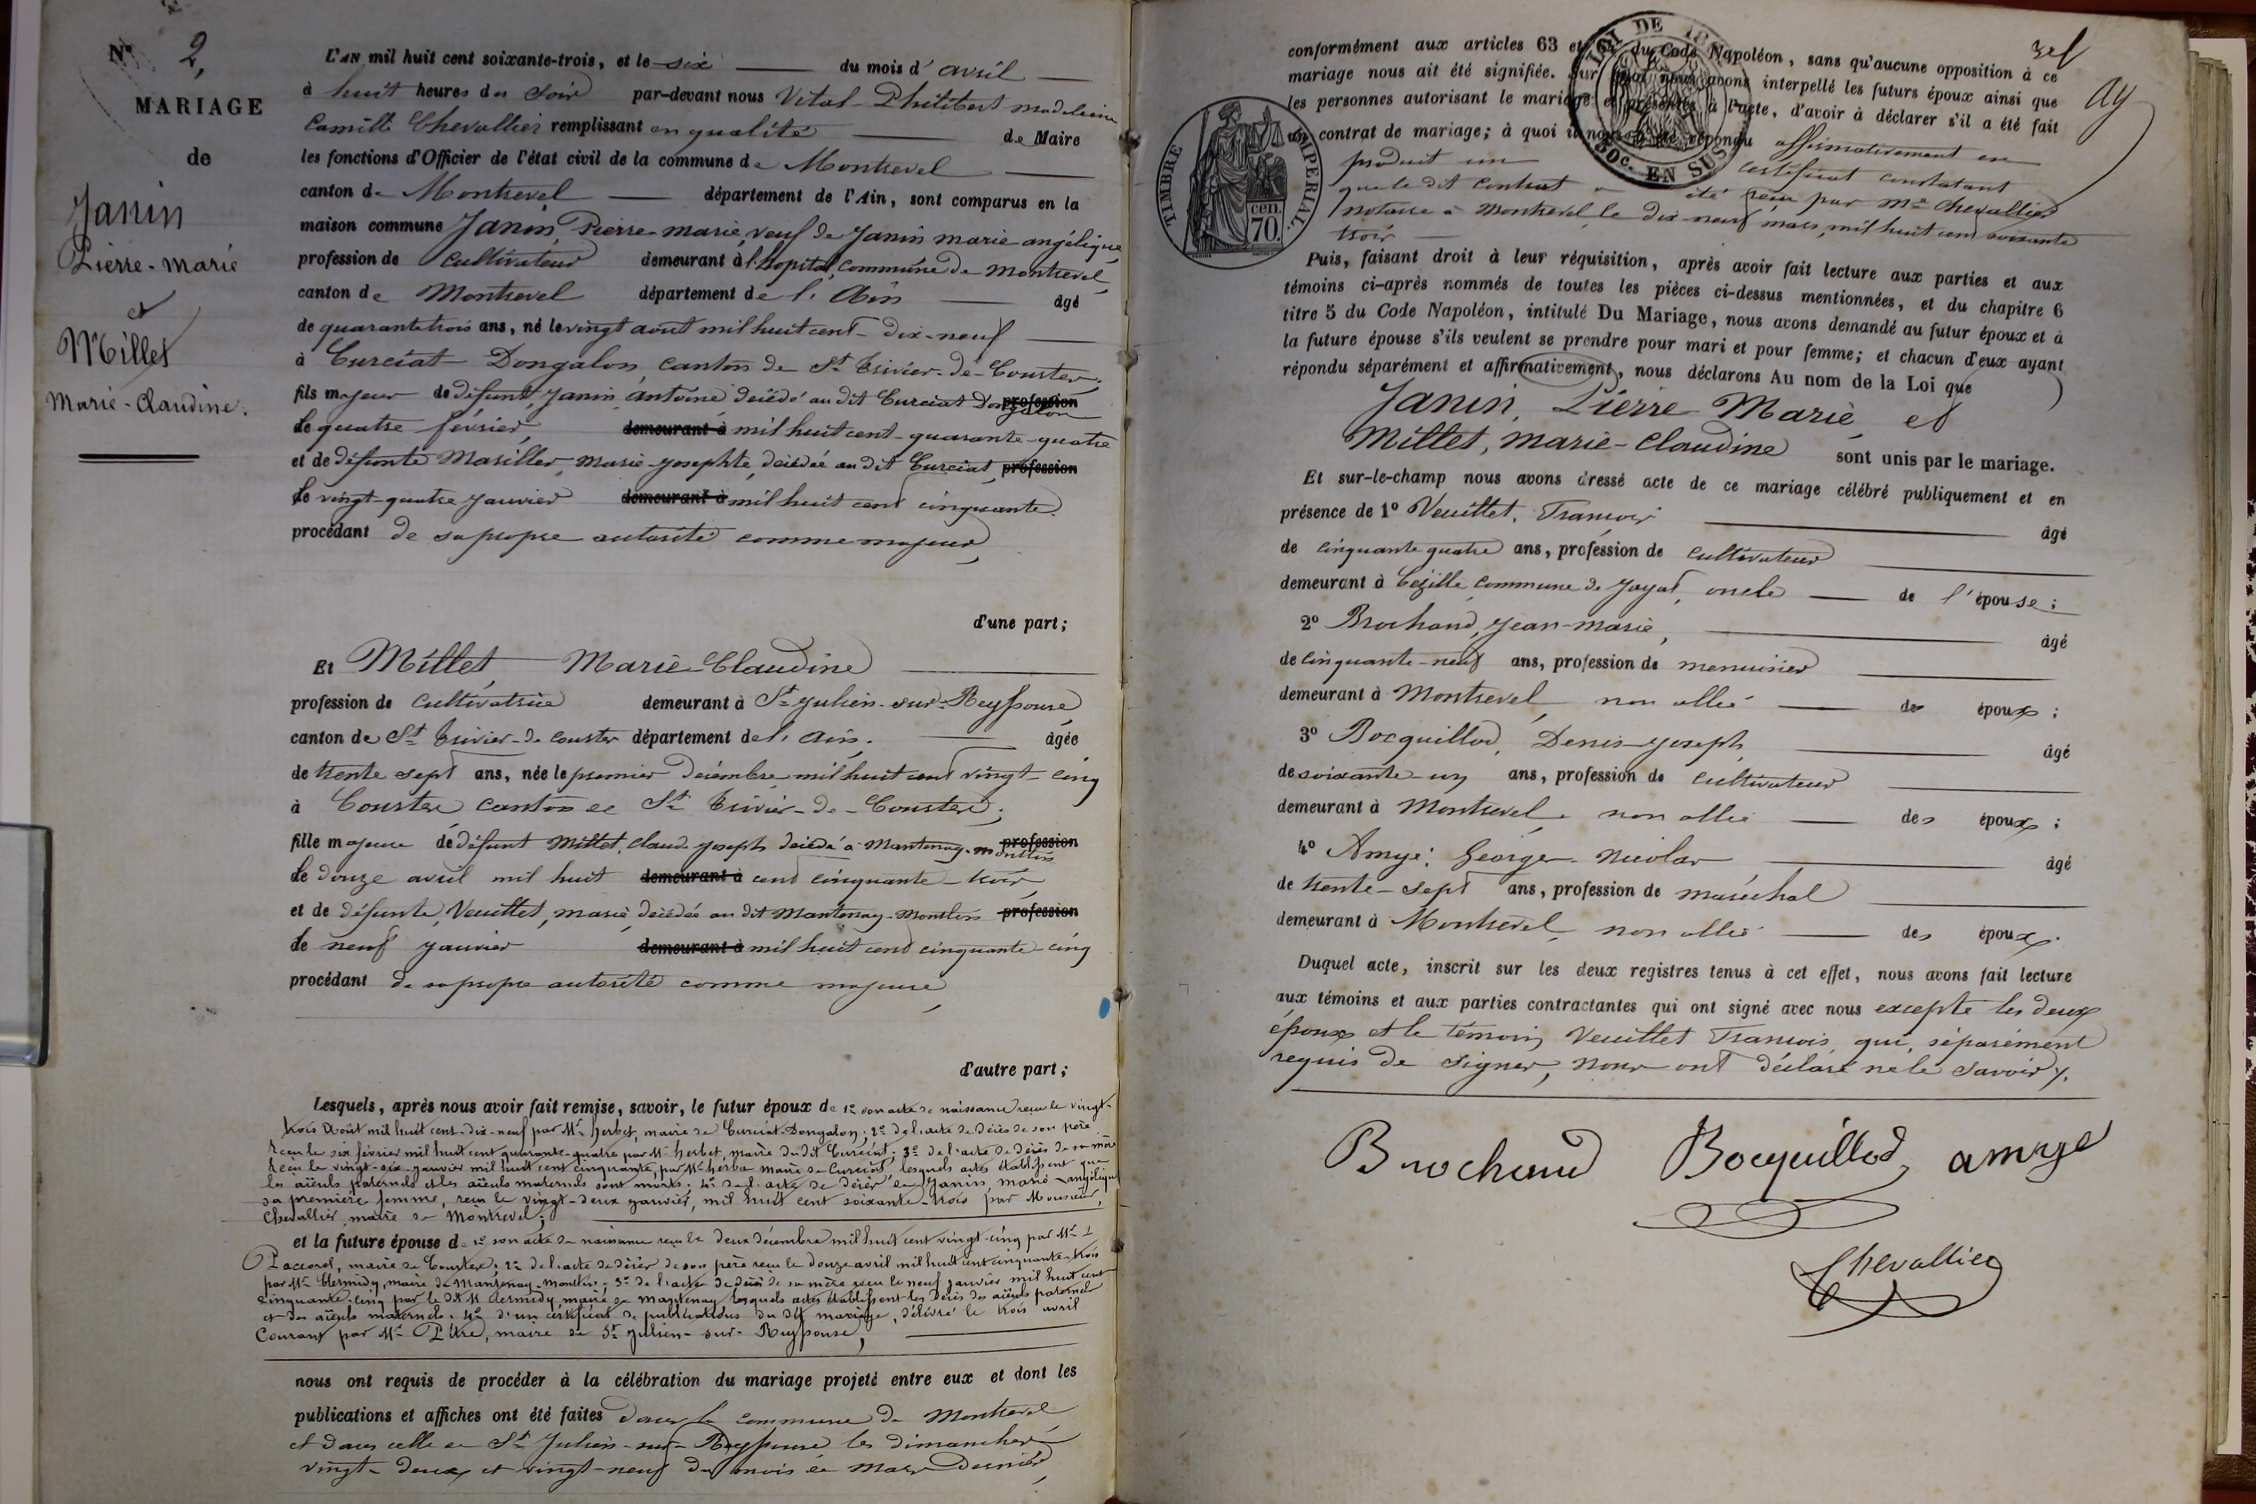 N° 2,
MARIAGE
de
Janin
Pierre-marie
et
Millet
Marie-Claudine.
L'AN mil huit cent soixante-trois, et le six du mois d' avril
à huit heures du soir par-devant nous Vital Philibert madeleine
Camille Chevallier remplissant en qualité de Maire
les fonctions d'Officier de l'état civil de la commune de Montrevel
canton de Montrevel département de l'Ain, sont comparus en la
maison commune Janin Pierre-marie, veuf de Janin marie angélique,
profession de cultivateur demeurant à l'hopital, commune de Montrevel,
canton de Montrevel département de l'Ain âgé
de quarante trois ans, né le vingt août mil huit cent dix-neuf
à Curciat Dongalon, canton de St Trivier-de-Courtes,
fils majeur de défunt Janin antoine décédé au dit Curciat Dongalon profession
le quatre février, demeurant à mil huit cent quarante-quatre
et de défunte Mariller, marie josephte, décédée au dit Curciat, profession
le vingt-quatre janvier demeurant à mil huit cent cinquante.
procédant de sa propre autorité comme majeur,
d'une part;
Et Millet, Marie-Claudine
profession de cultivatrice demeurant à St julien-sur-Reyssouze,
canton de St Trivier-de courtes département de l'Ain. âgée
de trente sept ans, née le premier décembre mil huit cent vingt-cinq
à Courtes canton de St Trivier-de-Courtes;
fille majeure de défunt Millet, Claude joseph décédé à Mantenay-montlin profession
le douze avril mil huit demeurant à cent cinquante-trois
et de défunte, Veuillet, marie, décédée au dit Mantenay-Montlin profession
le neuf janvier demeurant à mil huit cent cinquante-cinq
procédant de sa propre autorité comme majeure,
d'autre part;
Lesquels, après nous avoir fait remise, savoir, le futur époux de 1° son acte de naissance reçu le vingt-
trois août mil huit cent dix-neuf par Mr Herbet, maire de Curciat-Dongalon; 2° de l'acte de décès de son père
reçu le six février mil huit cent quarante-quatre par Mr herbet, maire du dit Curciat; 3° de l'acte de décès de sa mère
reçu le vingt-six janvier mil huit cent cinquante, par Mr herbet maire de Curciat, lesquels actes établissent que
les aïeuls paternels et les aïeuls maternels sont morts; 4° de l'acte de décès de Janin, marie angélique
sa première femme, reçu le vingt-deux janvier, mil huit cent soixante-trois par Monsieur,
Chevallier, maire de Montrevel;
et la future épouse de 1° son acte de naissance reçu le deux décembre mil huit cent vingt-cinq par Mr
Paccoud, maire de Courtes; 2° de l'acte de décès de son père reçu le douze avril mil huit cent cinquante-trois
par Mr Clermidy, maire de Mantenay-montlin; 3° de l'acte de décès de sa mère reçu le neuf janvier mil huit cent
cinquante-cinq par le dit M. Clermidy, maire de mantenay lesquels actes établissent les décès des aïeuls paternels
et des aïeuls maternels; 4° d'un certificat de publications du dit mariage, délivré le trois avril
courant par Mr Pitre, maire de St julien-sur-Reyssouze,
nous ont requis de procéder à la célébration du mariage projeté entre eux et dont les
publications et affiches ont été faites dans la commune de Montrevel
et dans celle de St Julien-sur-Reyssouze les dimanches
vingt-deux et vingt-neuf du mois de mars dernier,
conformément aux articles 63 et du Code Napoléon, sans qu'aucune opposition à ce
mariage nous ait été signifiée. Sur quoi nous avons interpellé les futurs époux ainsi que
les personnes autorisant le mariage et présentes à l'acte, d'avoir à déclarer s'il a été fait
un contrat de mariage; à quoi ils nous ont répondu affirmativement en
produit un certificat constatant
que le dit contrat a été reçu par me Chevallier
notaire à Montrevel, le dix-neuf mars, mil huit cent soixante
trois
TIMBRE IMPERIAL.
70 cen.
LOI DE 18
50c. EN SUS
Puis, faisant droit à leur réquisition, après avoir fait lecture aux parties et aux
témoins ci-après nommés de toutes les pièces ci-dessus mentionnées, et du chapitre 6
titre 5 du Code Napoléon, intitulé Du Mariage, nous avons demandé au futur époux et à
la future épouse s'ils veulent se prendre pour mari et pour femme; et chacun d'eux ayant
répondu séparément et affirmativement, nous déclarons Au nom de la Loi que
Janin, Pierre-Marie, et
Millet, marie-Claudine sont unis par le mariage.
Et sur-le-champ nous avons dressé acte de ce mariage célébré publiquement et en
présence de 1° Veuillet, François âgé
de cinquante quatre ans, profession de cultivateur
demeurant à Cezille, commune de Jayat, oncle de l'épouse;
2° Brochand, jean-marie, âgé
de cinquante-neuf ans, profession de menuisier
demeurant à Montrevel, non allié des époux;
3° Bocquillod, Denis-joseph, âgé
de soixante-un ans, profession de cultivateur
demeurant à Montrevel, non allié des époux;
4° Amye, George-nicolas âgé
de trente-sept ans, profession de maréchal
demeurant à Montrevel, non allié des époux.
Duquel acte, inscrit sur les deux registres tenus à cet effet, nous avons fait lecture
aux témoins et aux parties contractantes qui ont signé avec nous excepté les deux
époux et le témoin Veuillet François qui, séparément
requis de signer, nous ont déclaré ne le savoir.
Brochand Bocquillod amye
Chevallier